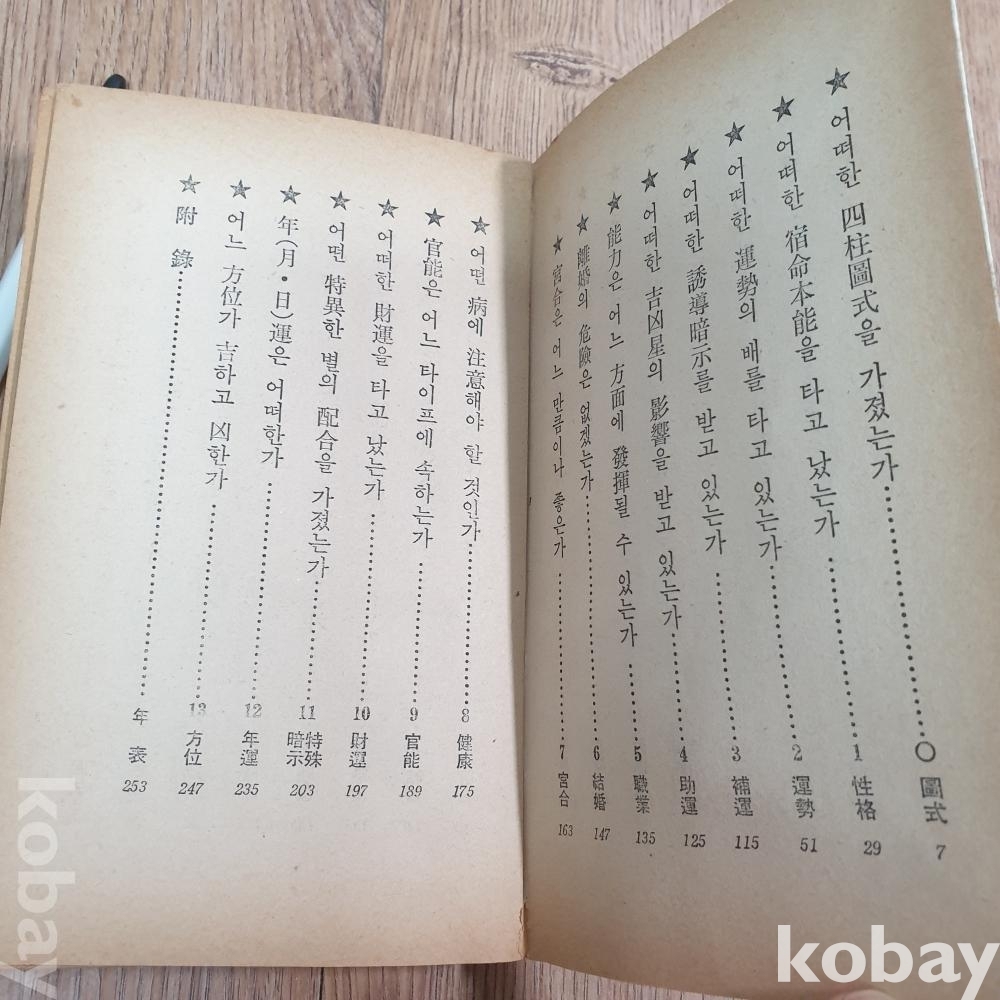 ★ 어떠한 四柱圖式을 가졌는가……〇 圖式 7
★ 어떠한 宿命本能을 타고 났는가……1 性格 29
★ 어떠한 運勢의 배를 타고 있는가……2 運勢 51
★ 어떠한 誘導暗示를 받고 있는가……3 補運 115
★ 어떠한 吉凶星의 影響을 받고 있는가……4 助運 125
★ 能力은 어느 方面에 發揮될 수 있는가……5 職業 135
★ 離婚의 危險은 없겠는가……6 結婚 147
★ 宮合은 어느 만큼이나 좋은가……7 宮合 163
★ 어떤 病에 注意해야 할 것인가……8 健康 175
★ 官能은 어느 타이프에 속하는가……9 官能 189
★ 어떠한 財運을 타고 났는가……10 財運 197
★ 어떤 特異한 별의 配合을 가졌는가……11 特殊暗示 203
★ 年(月・日)運은 어떠한가……12 年運 235
★ 어느 方位가 吉하고 凶한가……13 方位 247
★ 附錄……年表 253
kobay
kobay